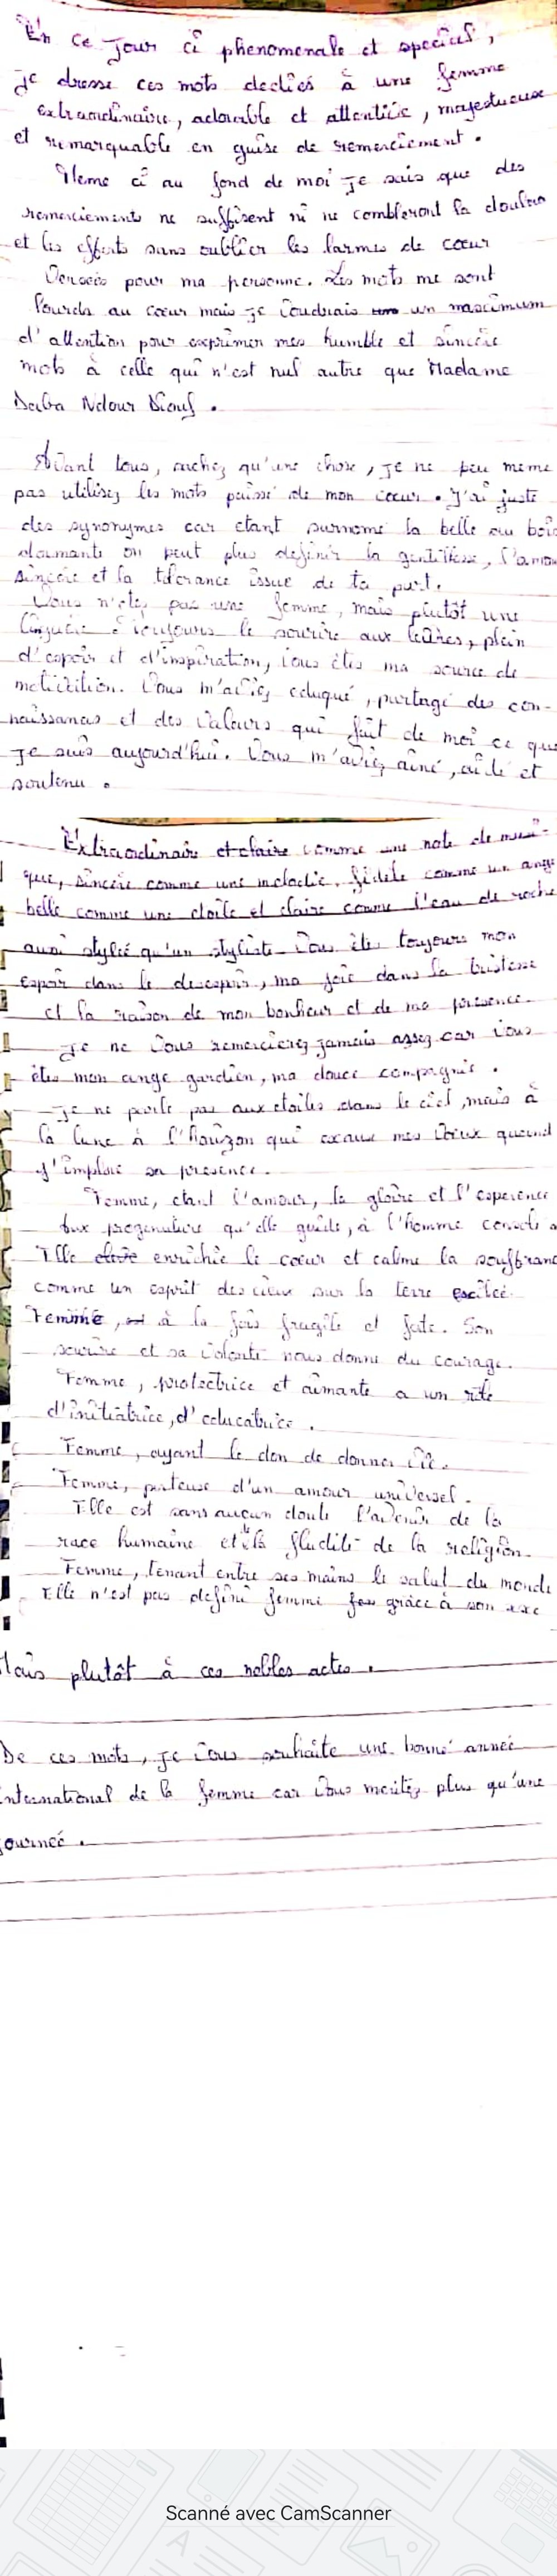 En ce jour ci phenomenale et special,
je dresse ces mots dediés à une femme
extraordinaire, adorable et attentive, majestueuse
et remarquable en guise de remerciement.
Meme ci au fond de moi je sais que des
remerciements ne suffisent ni ne combleront la douleur
et les efforts sans oublier les larmes de cœur
Versées pour ma personne. Les mots me sont
lourds au cœur mais je voudrais un maximum
d'attention pour exprimer mes humble et sincère
mots à celle qui n'est nul autre que Madame
Daba Ndour Diouf.
Avant tous, sachez qu'une chose, je ne peu meme
pas utilisez les mots puissé de mon cœur. J'ai juste
des synonymes car etant surnomé la belle au bois
dormante on peut plus definir la gentillesse, l'amour
sincère et la tolerance issue de ta part.
Vous n'etes pas une femme, mais plutôt une
toujours le sourire aux lèvres, plein
d'espoir et d'inspiration, vous êtes ma source de
motivation. Vous m'aviez eduqué, partagé des con-
naissances et des valeurs qui fait de moi ce que
je suis aujourd'hui. Vous m'aviez aimé, aidé et
soutenu.
Extraordinaire et claire comme une note de musi-
que, sincère comme une melodie, fidèle comme un ange
belle comme une étoile et claire comme l'eau de roche
aussi stylée qu'un styliste. Vous êtes toujours mon
espoir dans le desespoir, ma joie dans la tristesse
et la raison de mon bonheur et de ma presence.
Je ne vous remercierez jamais assez car vous
êtes mon ange gardien, ma douce compagnie.
Je ne parle pas aux étoiles dans le ciel, mais à
la lune à l'horizon qui exauce mes vœux quand
j'implore sa presence.
Femme, etant l'amour, la gloire et l'esperence
Aux progenature qu'elle guide, à l'homme
Elle enrichie le cœur et calme la souffrance
comme un esprit des cieux sur la terre exilée.
Femme, à la fois fragile et forte. Son
sourire et sa volonté nous donne du courage.
Femme, protectrice et aimante a un rôle
d'initiatrice, d'educatrice.
Femme, ayant le don de donner vie.
Femme, porteuse d'un amour universel.
Elle est sans aucun doute l'avenir de la
race humaine et la fludité de la religion.
Femme, tenant entre ses mains le salut du monde
Elle n'est pas defini femme grâce à son sexe
Mais plutôt à ces nobles actes.
De ces mots, je vous souhaite une bonne année
international de la femme car vous meritez plus qu'une
journée.
Scanné avec CamScanner